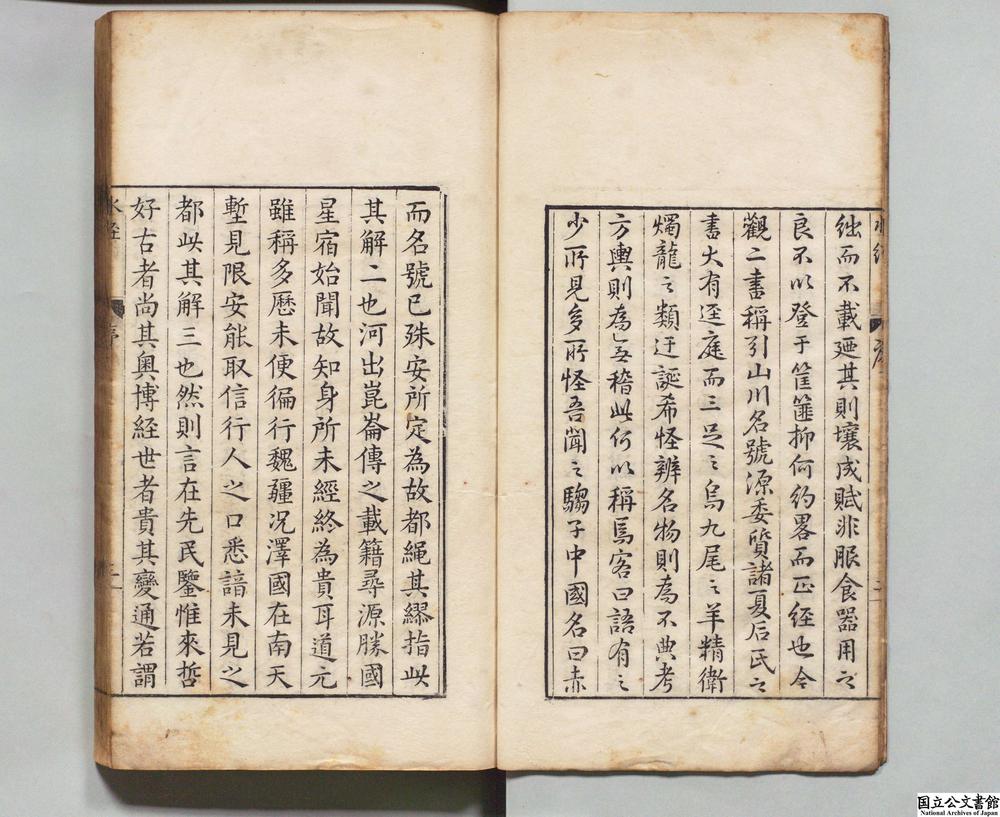 水經
序
二
絀而不載廼其則壤成賦非服食器用之
良不以登于筐篚抑何約畧而正經也今
觀二書稱引山川名號源委質諸夏后氏之
書大有逕庭而三足之烏九尾之羊精衛
燭龍之類迂誕希怪辨名物則為不典考
方輿則為無稽此何以稱焉客曰語有之
少所見多所怪吾聞之騶子中國名曰赤
而名號已殊安所定為故都繩其繆指此
其解二也河出崑崙傳之載籍尋源勝國
星宿始聞故知身所未經終為貴耳道元
雖稱多歷未便徧行魏疆况澤國在南天
塹見限安能取信行人之口悉諳未見之
都此其解三也然則言在先民鑒惟來哲
好古者尚其奧博經世者貴其變通若謂
水經
序
國立公文書館
National Archives of Japan